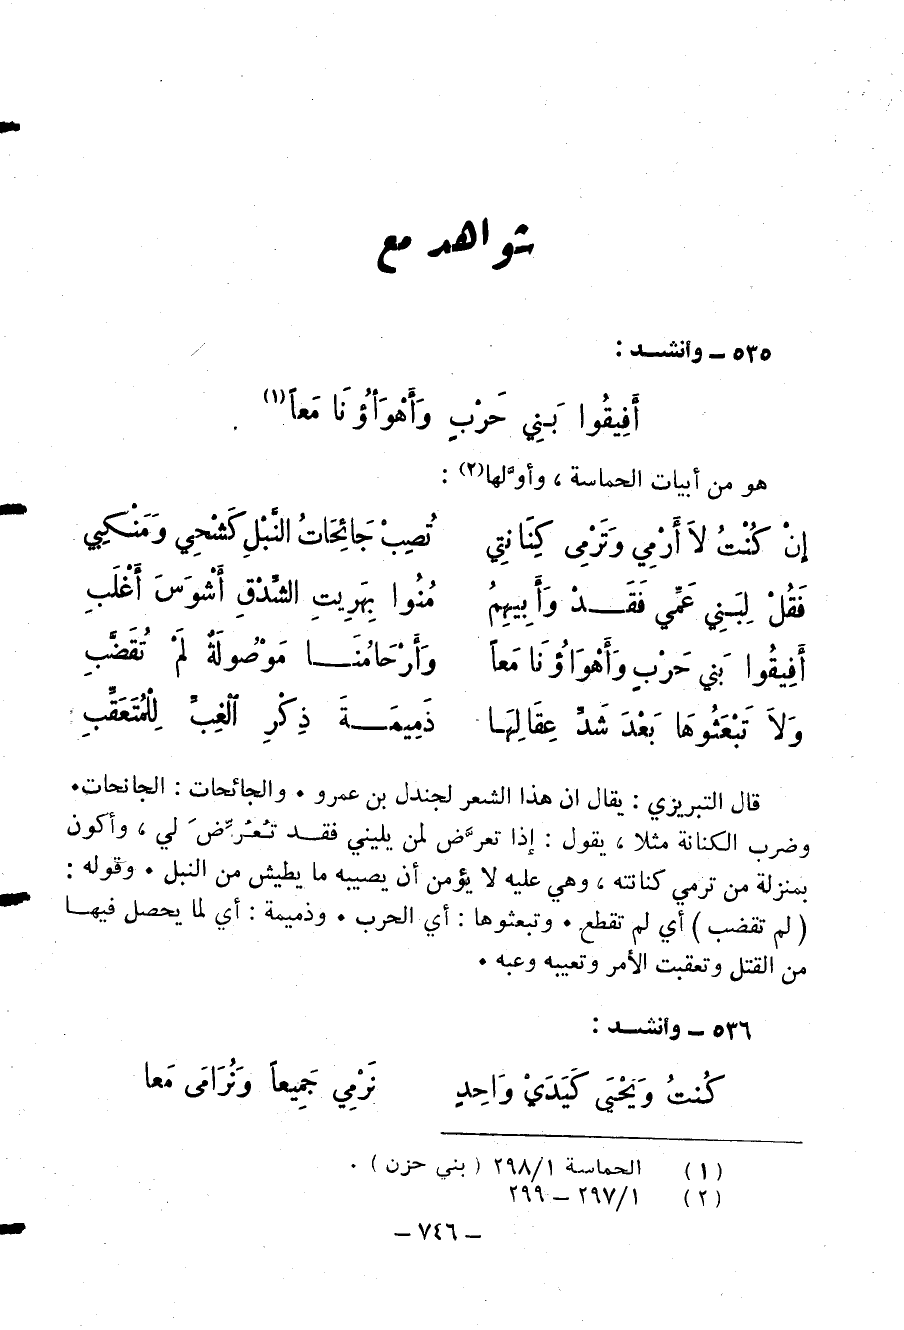 شواهد مع
٥٣٥ ــ وأنشــد :
أَفِيقُوا بَنِي حَرْبٍ وَأَهْوَأؤُنَا مَعاً(١)
هو من أبيات الحماسة ، وأوَّلها(٢) :
إنْ كُنْتُ لاَ أَرْمِي وَتَرْمِى كِنَانتِي تُصِبْ جَائِحَاتُ النَّبْلِ كَشْحِي وَمَنْكِبِي
فَقُلْ لِبَـنِي عَمِّي فَقَــدْ وَأَبِيهِمُ مُنُوا بِهَرِيتِ الشَّدْقِ أَشْوَسَ أَغْلَبِ
أَفِيقُوا بَنِي حَرْبٍ وَأَهْوَاؤُنَا مَعاً وَأَرْحَامُنَــا مَوْصُولَةٌ لَمْ تُقَضَّبِ
وَلاَ تَبْعَثُوهَا بَعْدَ شَدِّ عِقَالِهَـا ذَمِيمَــةَ ذِكْرِ الْغِبِّ لِلْمُتَعَقِّبِ
قال التبريزي : يقال ان هذا الشعر لجندل بن عمرو • والجائحات : الجانحات•
وضرب الكنانة مثلا ، يقول : إذا تعرَّض لمن يليني فقــد تُعُرِّضَ لي ، وأكون
بمنزلة من ترمي كنانته ، وهي عليه لا يؤمن أن يصيبه ما يطيش من النبل • وقوله :
( لم تقضب ) أي لم تقطع • وتبعثوها : أي الحرب • وذميمة : أي لما يحصل فيهــا
من القتل وتعقبت الأمر وتعيبه وعبه •
٥٣٦ ــ وأنشــد :
كُنتُ وَيَحْيَى كَيَدَيْ وَاحِدٍ نَرْمِي جَمِيعاً وَنُرَامَى مَعا
(١) الحماسة ٢٩٨/١ ( بني حزن ) .
(٢) ٢٩٧/١ ــ ٢٩٩
ــ ٧٤٦ ــ